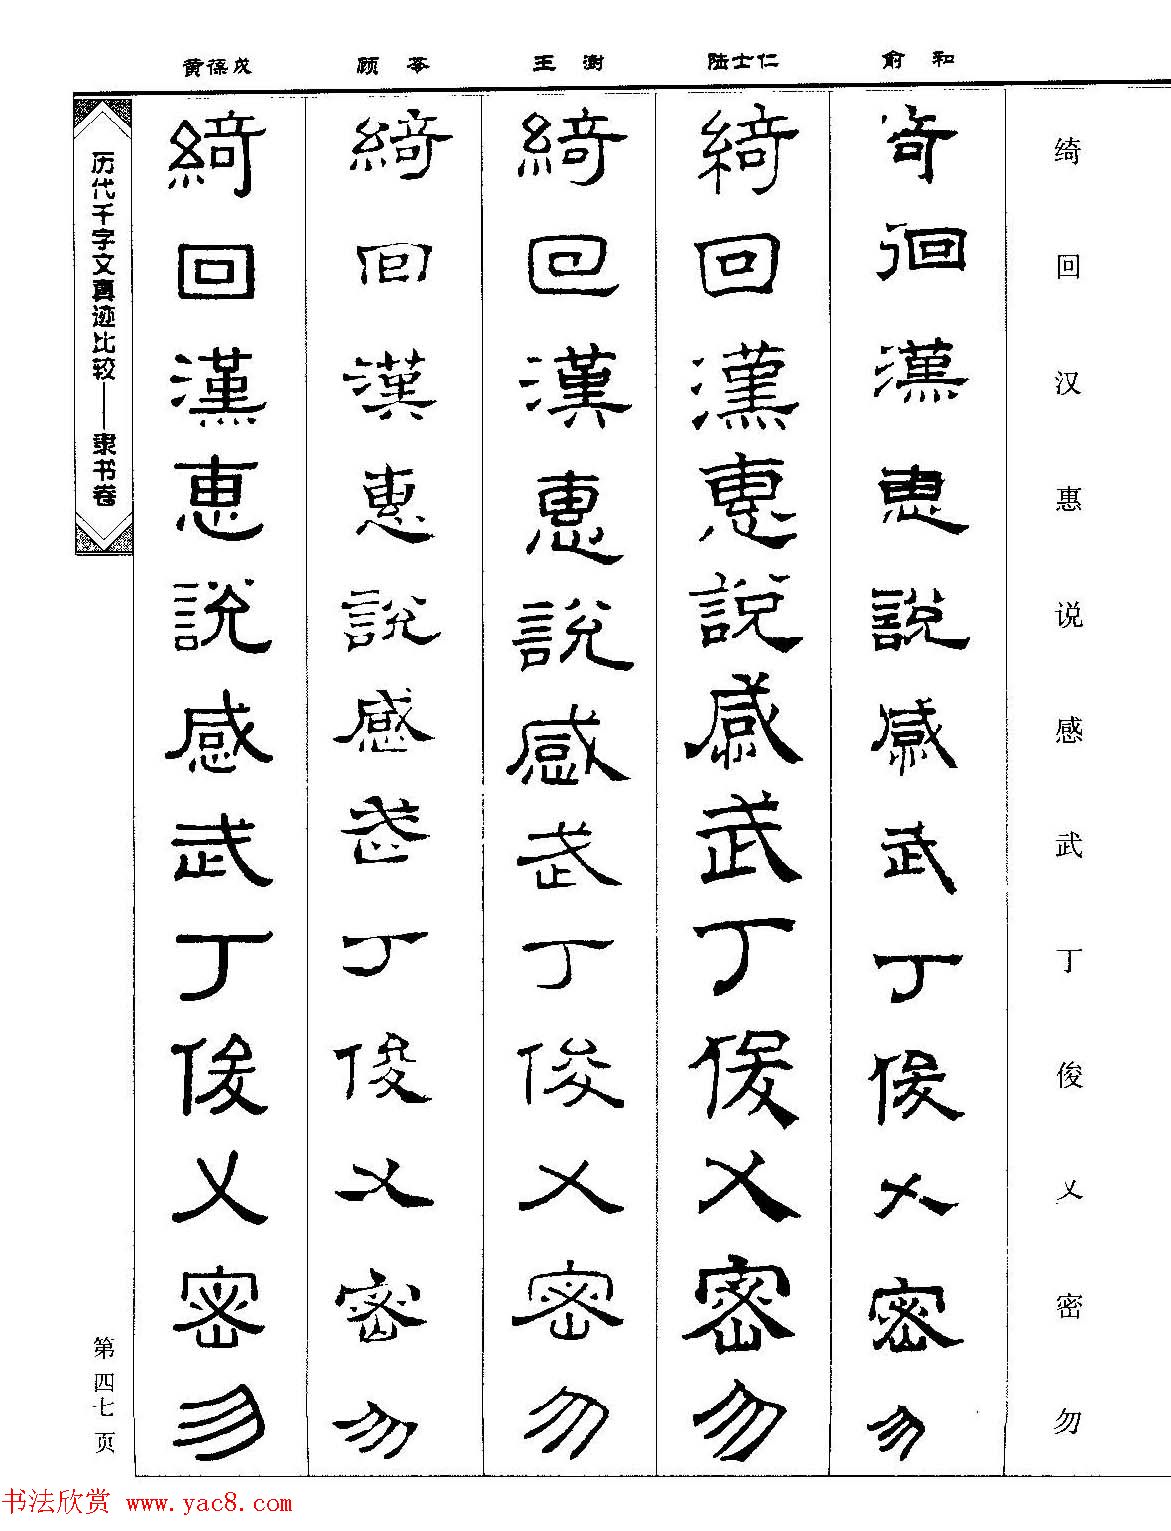 俞和
陆士仁
王澍
顾苓
黄葆戉
绮回汉惠说感武丁俊乂密勿
綺徊漢惠說感武丁俊乂密勿
綺回漢惠說感武丁俊乂密勿
綺回漢惠說感武丁俊乂密勿
綺回漢惠說感武丁俊乂密勿
綺回漢惠說感武丁俊乂密勿
历代千字文真迹比较——隶书卷
第四七页
书法欣赏 www.yac8.com